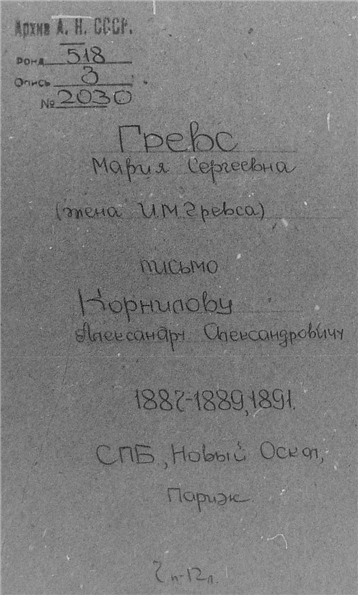 Архив А. Н. СССР.
Фонд 518
Опись 3
№ 2030
Гревс
Мария Сергеевна
(жена И.М. Гревса)
письмо
Корнилову
Александру Александровичу
1887-1889, 1891.
СПБ, Новый Оскол,
Париж
7 п-12 л.